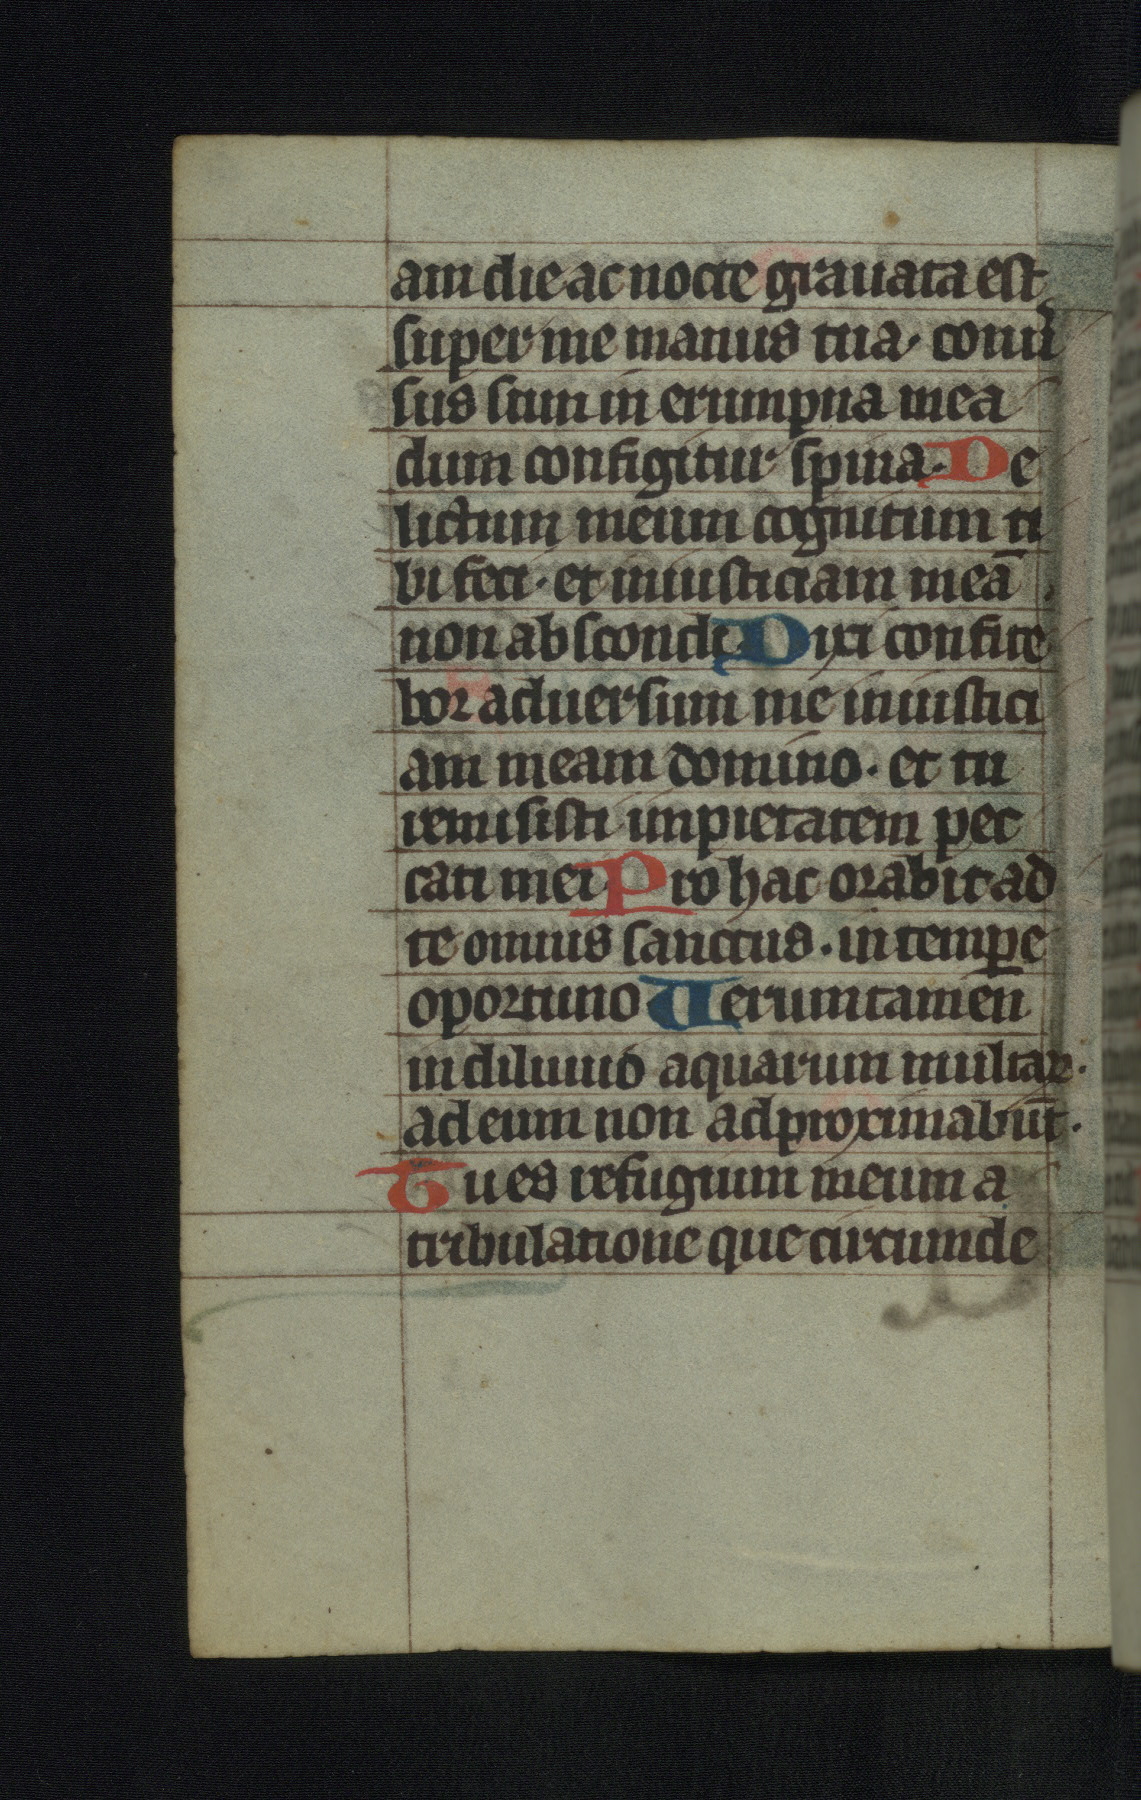 am die ac nocte grauata est
super me manus tua· conu̾
sus sum in erumpna mea
dum configitur spina· De
lictum meum cognitum ti
bi feci· et iniusticiam meā
non abscondi Dixi confite
bor aduersum me iniustici
am meam domino· et tu
remisisti impietatem pec
cati mei· Pro hac orabit ad
te omnis sanctus· in temꝑe
oportuno Ueruntamen̄
in diluuio aquarum multaꝝ·
ad eum non adproximabūt·
Tu es refugium meum a
tribulatione que circumde